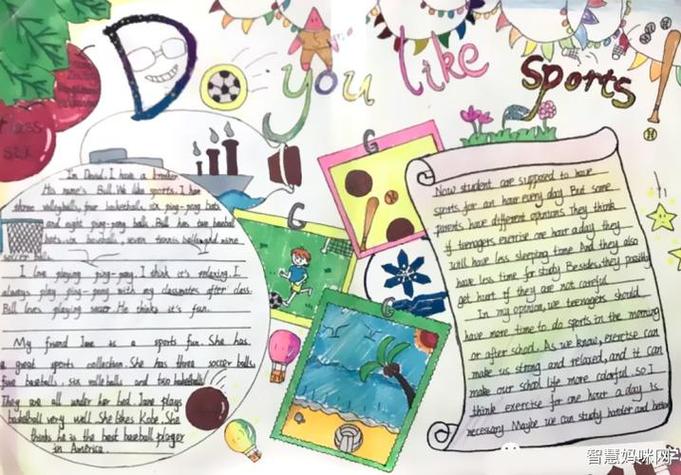 Do you like sports
class
six
In David I have a brother
His name's Bill. We like sports. I have
three volleyballs, four basketballs, six ping-pong bats
and eight ping-pong balls. Bill has two baseball
bats, six baseball, seven tennis balls and nine
soccer balls.
I love playing ping-pong. I think it's relaxing. I
always play ping-pong with my classmates after class.
Bill loves playing soccer. He thinks it's fun.
My friend Jane is a sports fun. She has
a great sports collection. She has three soccer balls,
five baseballs, six volleyballs and two basketballs.
They are all under her bed. Jane plays
basketball very well. She likes Kobe. She
thinks he is the best baseball player
in America.
G
G
G
Now student are supposed to have
sports for an hour every day. But some
parents have different opinions. They think
if teenagers exercise one hour a day, they
will have less sleeping time. And they also
have less time for study. Besides, they possibly
get hurt if they are not careful.
In my opinion, we teenagers should
have more time to do sports in the morning
or after school. As we know, exercise can
make us strong and relaxed, and it can
make our school life more colorful. so I
think exercise for one hour a day is
necessary. Maybe we can study harder and better
智慧妈咪网